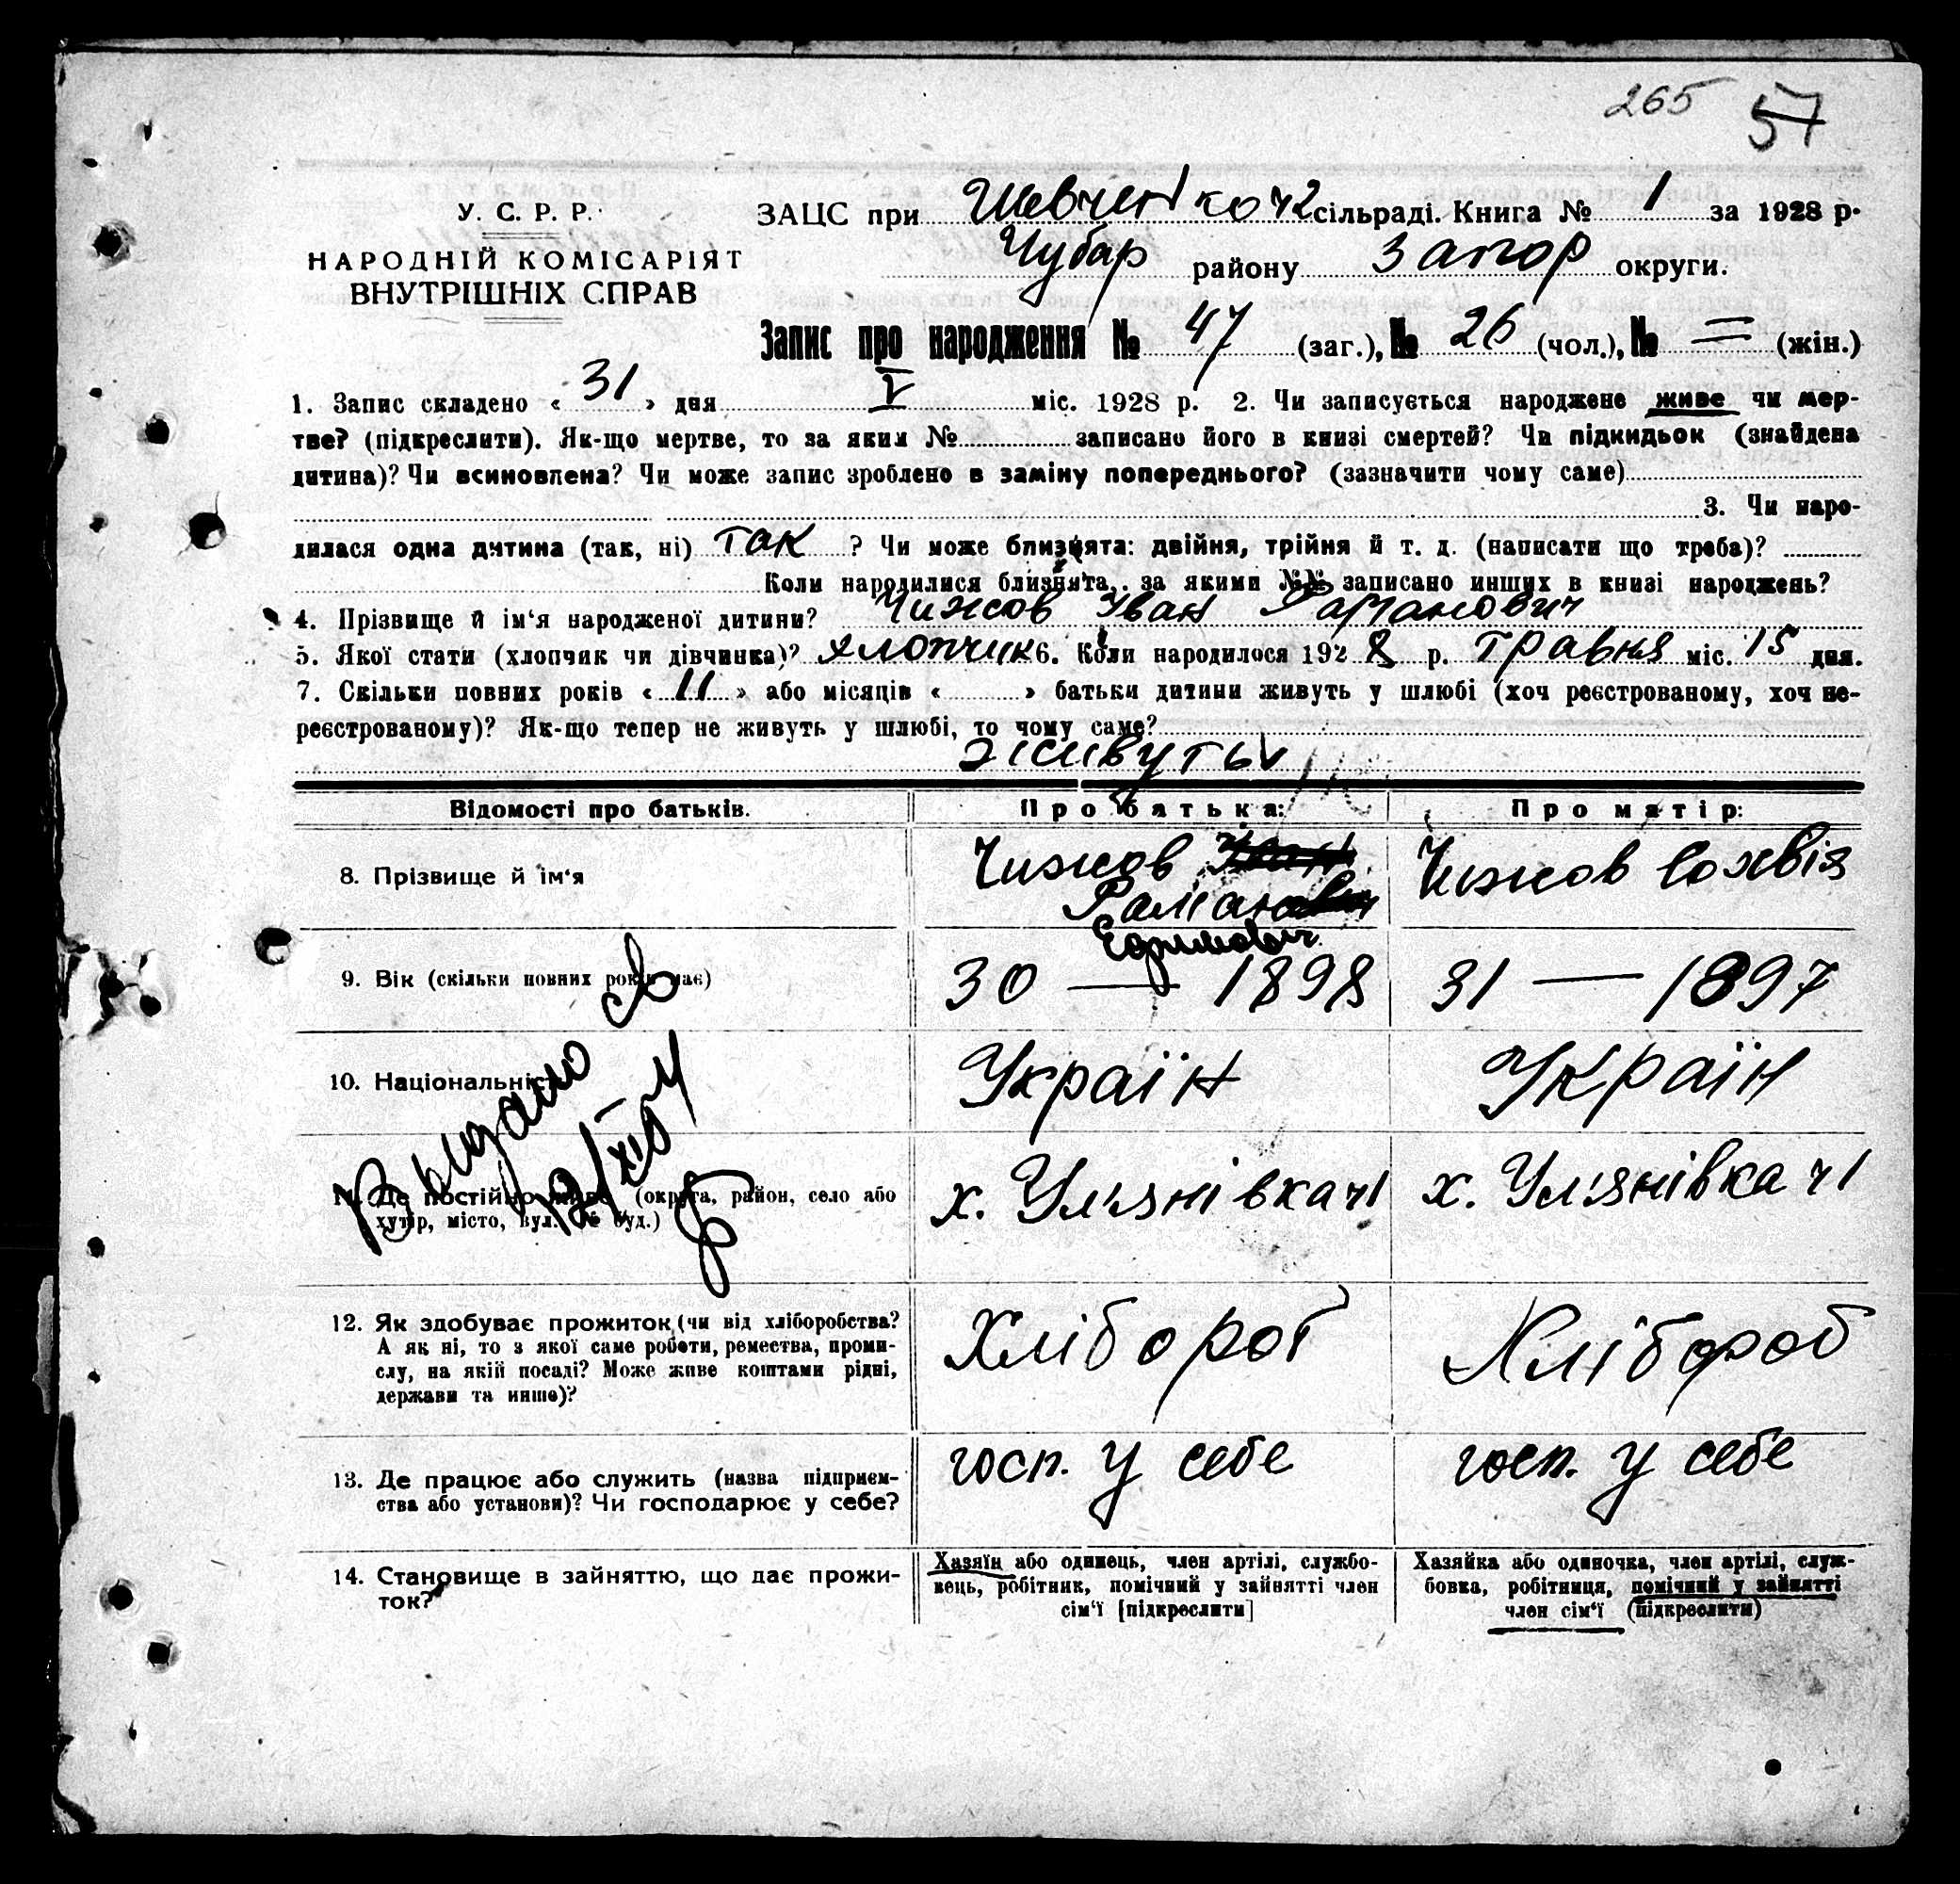 265 57
У. С. Р. Р.
НАРОДНІЙ КОМІСАРІЯТ
ВНУТРІШНІХ СПРАВ
ЗАЦС при Шевченко ч2 сільраді. Книга № 1 за 1928 р.
Чубар району Запор округи.
Запис про народження № 47 (заг.), № 26 (чол.), № = (жін.)
1. Запис складено « 31 » дня V міс. 1928 р. 2. Чи записується народжене живе чи мер-
тве? (підкреслити). Як-що мертве, то за яким № записано його в книзі смертей? Чи підкидьок (знайдена
дитина)? Чи всиновлена? Чи може запис зроблено в заміну попереднього? (зазначити чому саме)
3. Чи наро-
дилася одна дитина (так, ні) так ? Чи може близнята: двійня, трійня й т. д. (написати що треба)?
Коли народилися близнята, за якими №№ записано инших в книзі народжень?
4. Прізвище й ім‘я народженої дитини? Чижов Іван Раманович
5. Якої стати (хлопчик чи дівчинка)? хлопчик 6. Коли народилося 1928 р. травня міс. 15 дня.
7. Скільки повних років « 11 » або місяців « » батьки дитини живуть у шлюбі (хоч реєстрованому, хоч не-
реєстрованому)? Як-що тепер не живуть у шлюбі, то чому саме?
живуть
Відомості про батьків. Про батька: Про матір:
8. Прізвище й ім‘я
Чижов Раман
Ефимович
Чижов Сохвія
9. Вік (скільки повних років має) 30 — 1898 31 — 1897
10. Національність Україн Україн
Выдано
11. Де постійно живе (округа, район, село або
хутір, місто, вул. № буд.)
х. Ул'янівка ч1 х. Ул'янівка ч1
12. Як здобуває прожиток (чи від хліборобства?
А як ні, то з якої саме роботи, ремества, проми-
слу, на якій посаді? Може живе коштами рідні,
держави та инше)?
Хлібороб Хлібороб
13. Де працює або служить (назва підприєм-
ства або установи)? Чи господарює у себе?
госп. у себе госп. у себе
14. Становище в зайняттю, що дає прожи-
ток?
Хазяїн або одинець, член артілі, службо-
вець, робітник, помічний у зайнятті член
сім‘ї [підкреслити]
Хазяйка або одиночка, член артілі, служ-
бовка, робітниця, помічний у зайнятті
член сім‘ї (підкреслити)